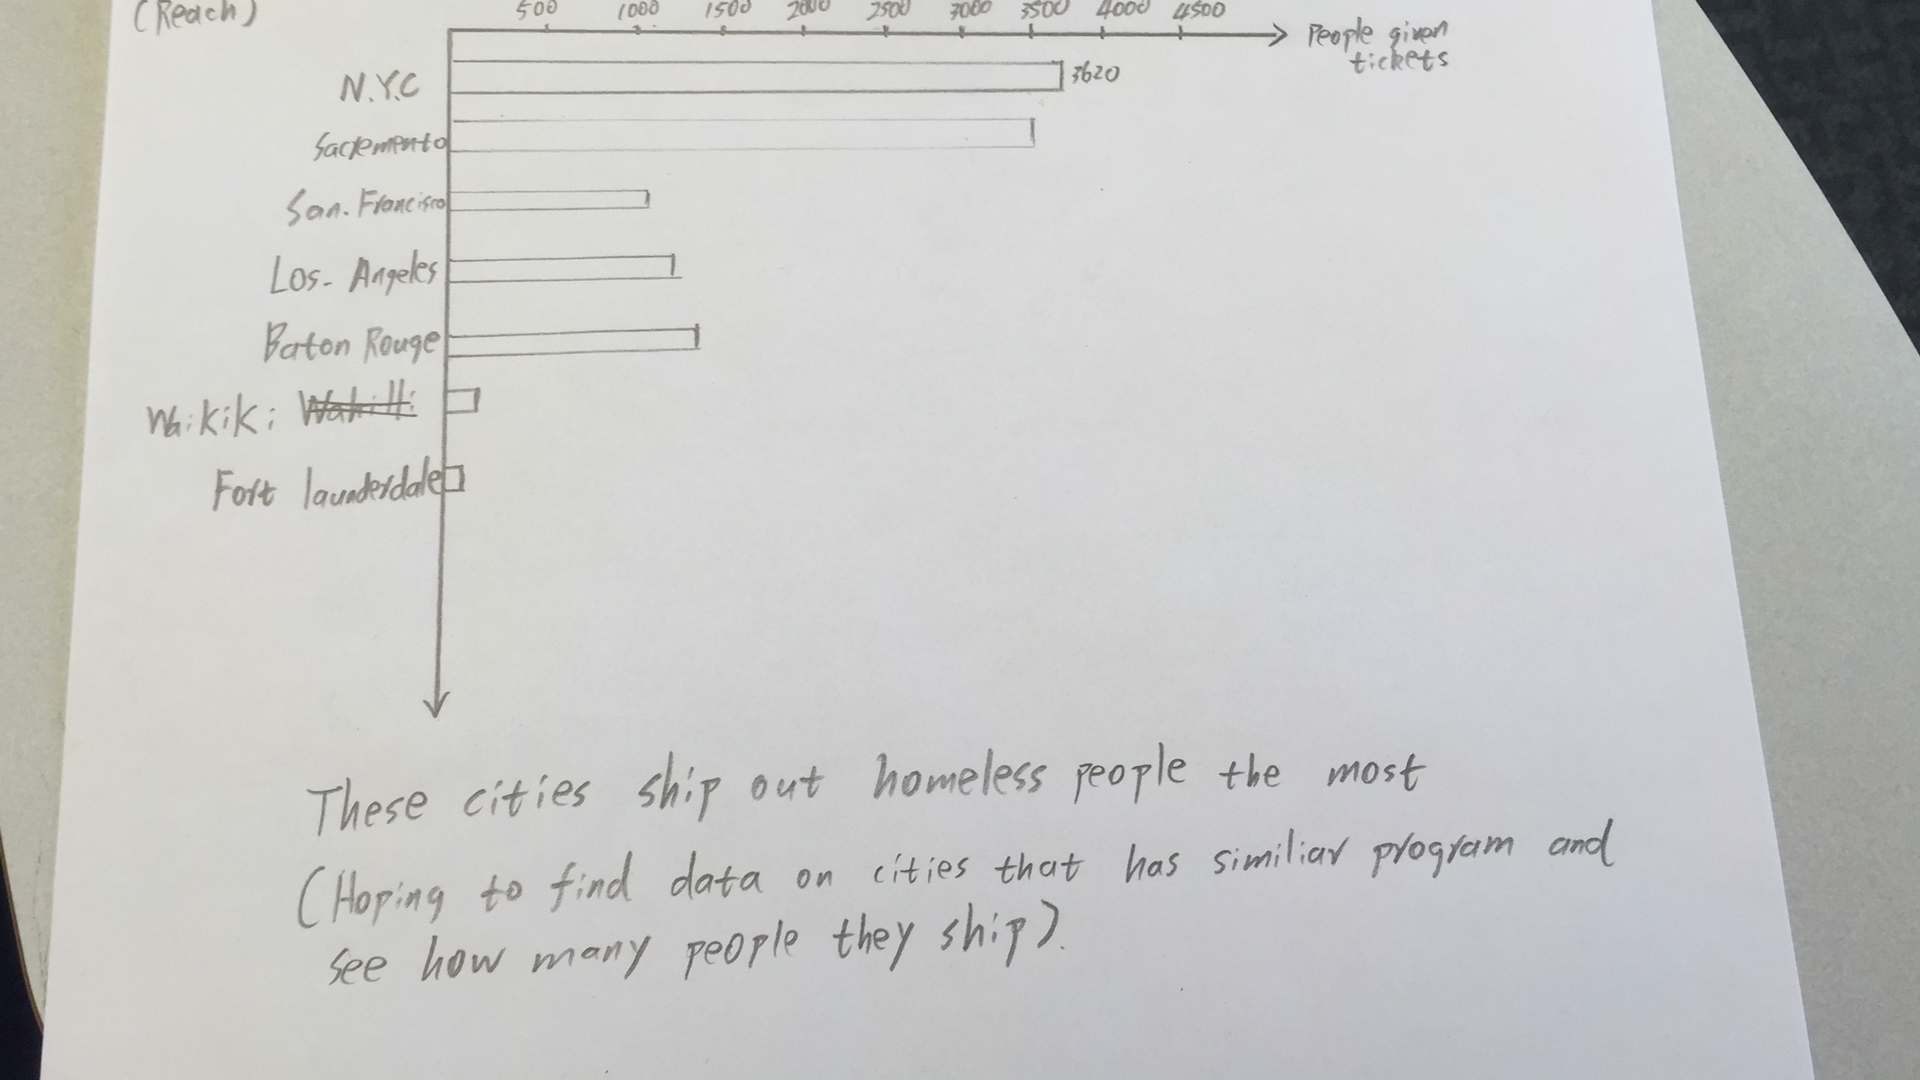 (Reach)
500 1000 1500 2000 2500 3000 3500 4000 4500
People given
tickets
N.Y.C
3620
Sacremento
San. Francisco
Los- Angeles
Baton Rouge
Waikiki
Fort launderdale
These cities ship out homeless people the most
(Hoping to find data on cities that has similiar program and
see how many people they ship).